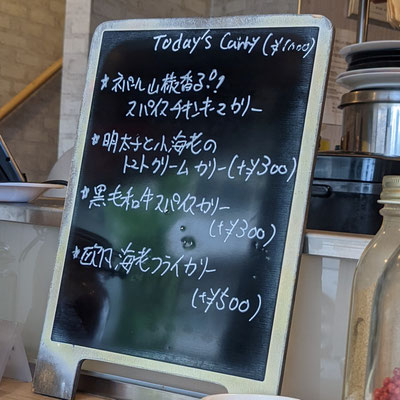 Today's Curry (¥1000)
*ネパール山椒香る!?
スパイスチキンキーマカリー
*明太子と小海老の
トマトクリームカリー(+¥300)
*黒毛和牛スパイスカリー
(+¥300)
*欧风 海老フライカリー
(+¥500)